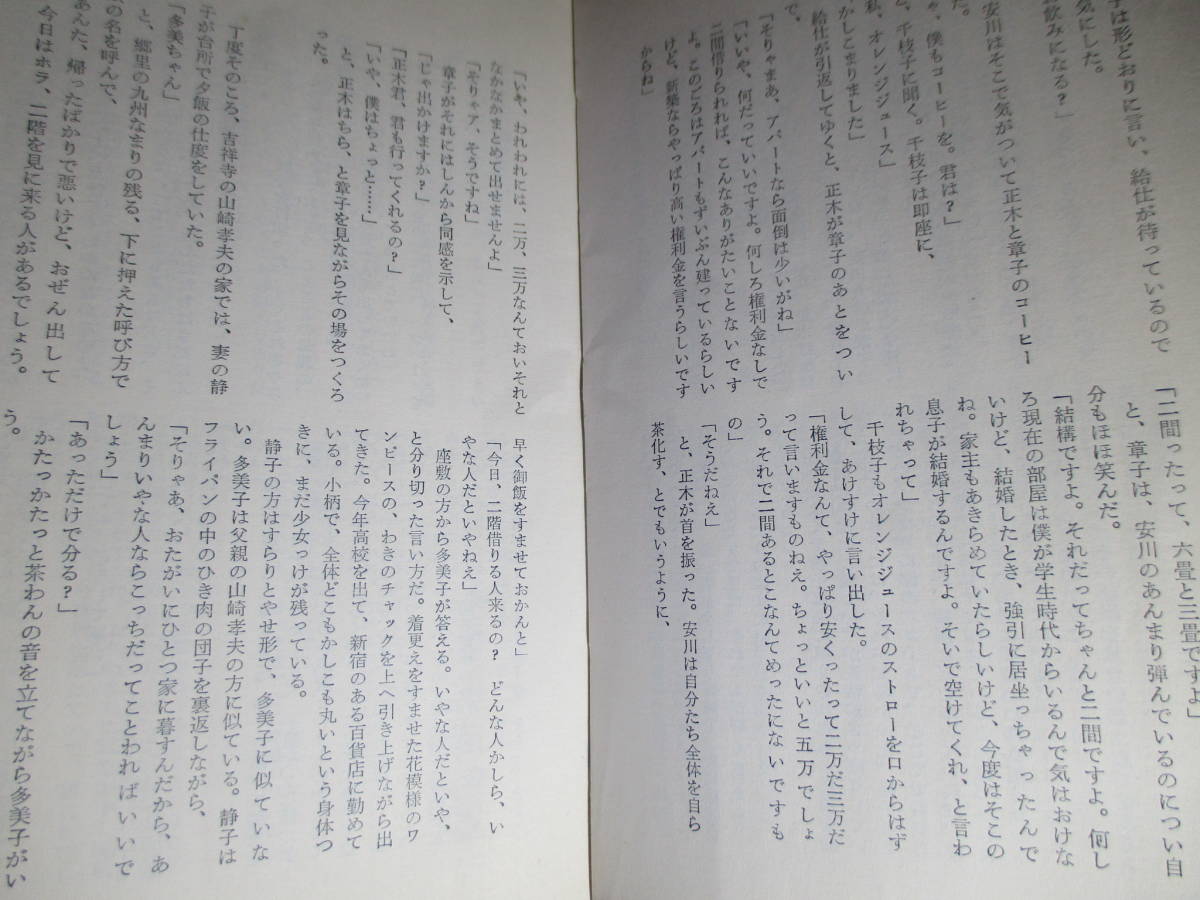 子は形どおりに言い、給仕が待っているので
気にした。
お飲みになる？」
安川はそこで気がついて正木と章子のコーヒー
た。
ゃ、僕もコーヒーを。君は？」
と、千枝子に聞く。千枝子は即座に、
私、オレンジジュース」
かしこまりました」
給仕が引返してゆくと、正木が章子のあとをつい
で、
「そりゃまあ、アパートなら面倒は少いがね」
「いいや、何だっていいですよ。何しろ権利金なしで
二間借りられれば、こんなありがたいことないです
よ。このごろはアパートもずいぶん建っているらしい
けど、新築ならやっぱり高い権利金を言うらしいです
からね」
「二間ったって、六畳と三畳ですよ」
と、章子は、安川のあんまり弾んでいるのについ自
分もほほ笑んだ。
「結構ですよ。それだってちゃんと二間ですよ。何し
ろ現在の部屋は僕が学生時代からいるんで気はおけな
いけど、結婚したとき、強引に居坐っちゃったんで
ね。家主もあきらめていたらしいけど、今度はそこの
息子が結婚するんですよ。そいで空けてくれ、と言わ
れちゃって」
千枝子もオレンジジュースのストローを口からはず
して、あけすけに言い出した。
「権利金なんて、やっぱり安くったって二万だ三万だ
って言いますものねえ。ちょっといいと五万でしょ
う。それで二間あるとこなんてめったにないですも
の」
「そうだねえ」
と、正木が首を振った。安川は自分たち全体を自ら
茶化す、とでもいうように、
「いや、われわれには、二万、三万なんておいそれと
なかなかまとめて出せませんよ」
「そりゃア、そうですね」
章子がそれにはしんから同感を示して、
「じゃ出かけますか？」
「正木君、君も行ってくれるの？」
「いや、僕はちょっと……」
と、正木はちら、と章子を見ながらその場をつくろ
った。
丁度そのころ、吉祥寺の山崎孝夫の家では、妻の静
子が台所で夕飯の仕度をしていた。
「多美ちゃん」
と、郷里の九州なまりの残る、下に押えた呼び方で
の名を呼んで、
あんた、帰ったばかりで悪いけど、おぜん出して
今日はホラ、二階を見に来る人があるでしょう。
早く御飯をすませておかんと」
「今日、二階借りる人来るの？　どんな人かしら、い
やな人だといやねえ」
座敷の方から多美子が答える。いやな人だといや、
と分り切った言い方だ。着更えをすませた花模様のワ
ンピースの、わきのチャックを上へ引き上げながら出
てきた。今年高校を出て、新宿のある百貨店に勤めて
いる。小柄で、全体どこもかしこも丸いという身体つ
きに、まだ少女っけが残っている。
静子の方はすらりとやせ形で、多美子に似ていな
い。多美子は父親の山崎孝夫の方に似ている。静子は
フライパンの中のひき肉の団子を裏返しながら、
「そりゃあ、おたがいにひとつ家に暮すんだから、あ
んまりいやな人ならこっちだってことわればいいで
しょう」
「あっただけで分る？」
かたっかたっと茶わんの音を立てながら多美子がい
う。